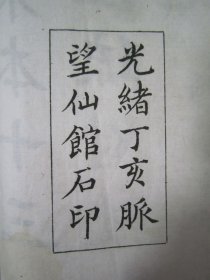 光緒丁亥脈
望仙館石印